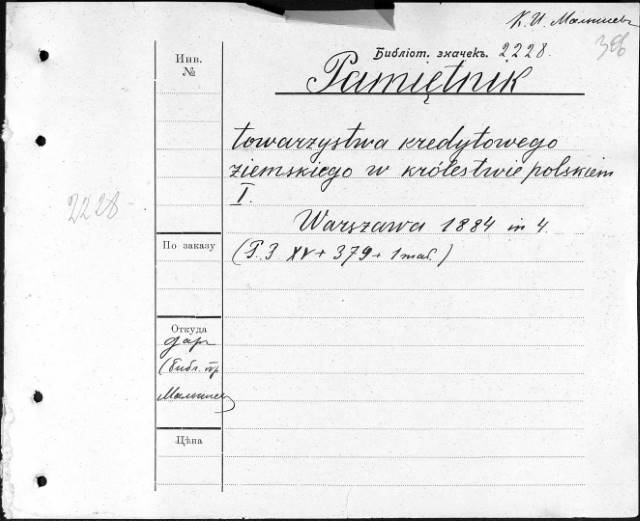 К. И. Малышев
Библіот. значекъ. 2228.
Инв.
№
Pamiętnik
towarzystwa kredytowego
ziemskiego w królestwie polskiem
I.
2228
Warszawa 1884 in 4.
По заказу
XV + 379 + 1 таб.)
Откуда
дар
(библ. пр
Малышев
Цѣна